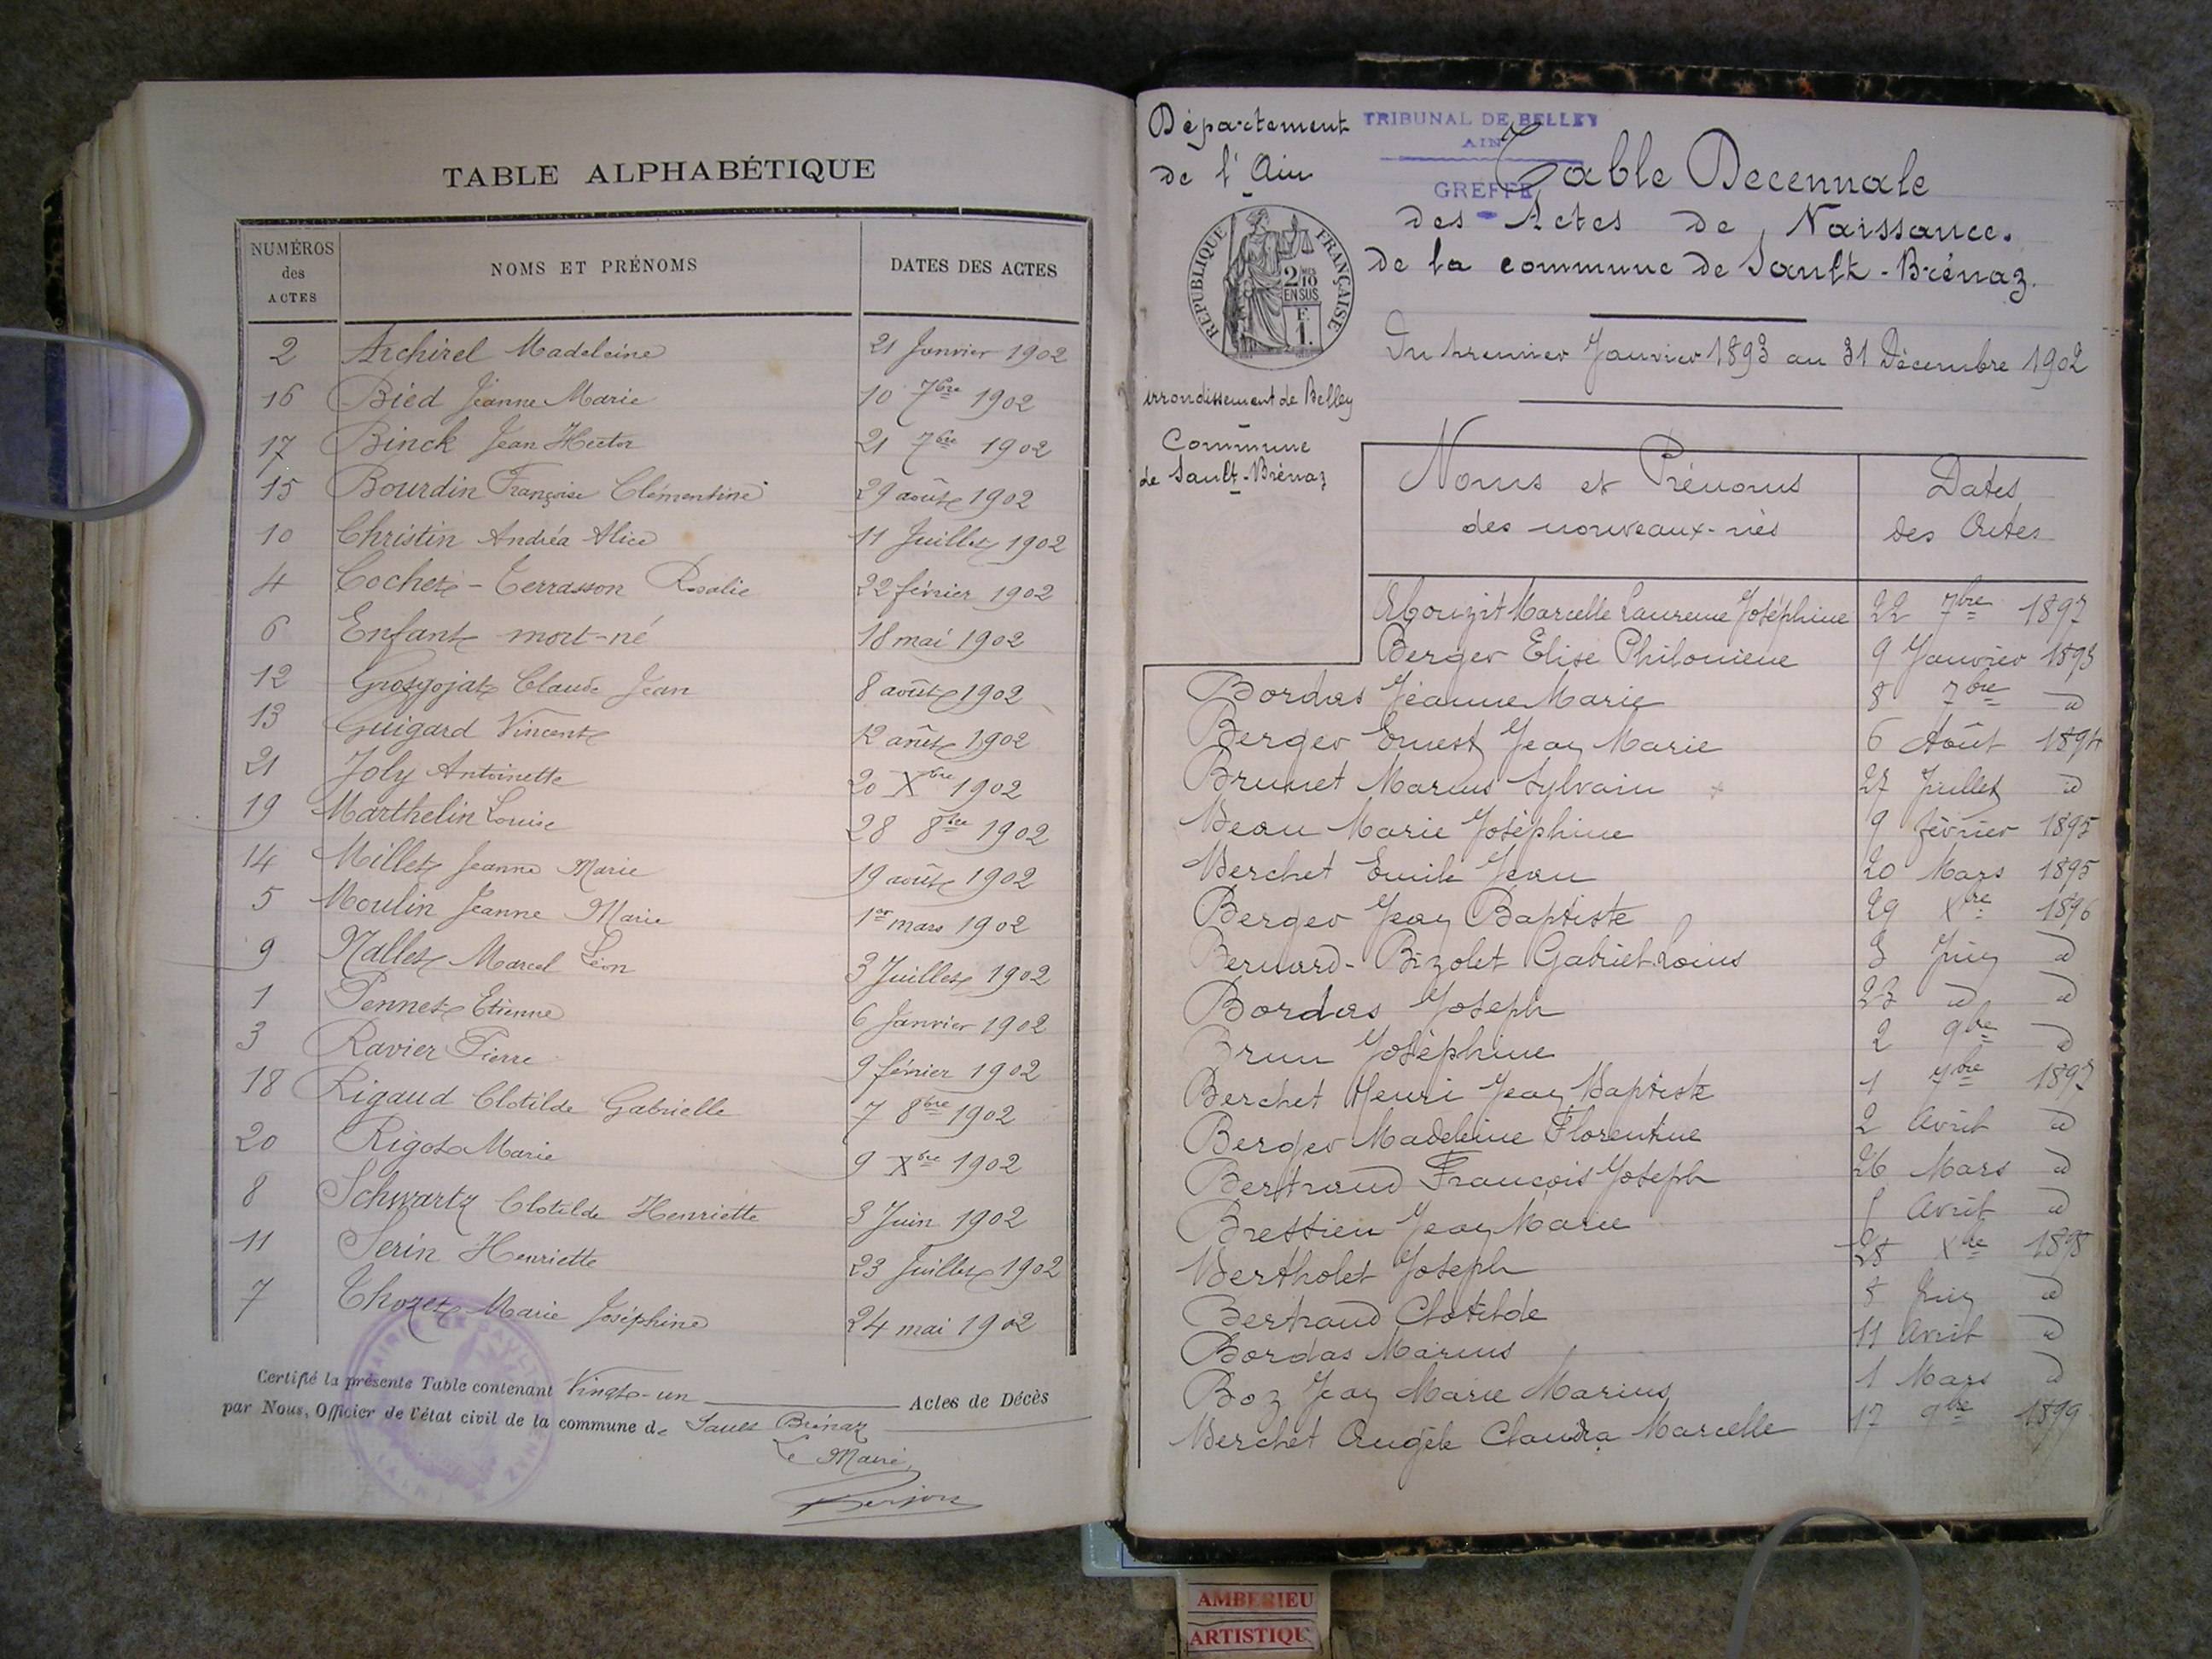 TABLE ALPHABÉTIQUE
NUMÉROS des ACTES NOMS ET PRÉNOMS DATES DES ACTES
2 Archirel Madeleine 21 Janvier 1902
16 Bied Jeanne Marie 10 7bre 1902
17 Binck Jean Hector 21 7bre 1902
15 Bourdin Françoise Clémentine 29 août 1902
10 Christin Andréa Alice 11 Juillet 1902
4 Cochet-Terrasson Rosalie 22 février 1902
6 Enfant mort-né 18 mai 1902
12 Grosgojat Claude Jean 8 août 1902
13 Guigard Vincent 12 août 1902
21 Joly Antoinette 20 Xbre 1902
19 Marthelin Louise 28 8bre 1902
14 Millet Jeanne Marie 19 août 1902
5 Moulin Jeanne Marie 1er mars 1902
9 Nallet Marcel Léon 3 Juillet 1902
1 Pennet Etienne 6 Janvier 1902
3 Ravier Pierre 9 février 1902
18 Rigaud Clotilde Gabrielle 7 8bre 1902
20 Rigot Marie 9 Xbre 1902
8 Schwartz Clotilde Henriette 3 Juin 1902
11 Serin Henriette 23 Juillet 1902
7 Thozet Marie Joséphine 24 mai 1902
Certifié la présente Table contenant Vingt-un Actes de Décès
par Nous, Officier de l'état civil de la commune de Sault Brénaz
Le Maire,
Département
de l'Ain
TRIBUNAL DE BELLEY
AIN
GREFFE
RÉPUBLIQUE FRANÇAISE
2 MES 10
EN SUS
F.
1.
Table Decennale
des Actes de Naissance.
de la commune de Sault-Brénaz.
Du premier Janvier 1893 au 31 Décembre 1902
arrondissement de Belley
Commune
de Sault-Brénaz
Noms et Prénoms Dates
des nouveaux-nés des Actes
Abouzit Marcelle Laurence Joséphine 22 7bre 1897
Berger Elise Philomène 9 Janvier 1893
Bordas Jeanne Marie 8 7bre d
Berger Ernest Jean Marie 6 Août 1894
Brunet Marius Sylvain 27 Juillet d
Beau Marie Joséphine 9 février 1895
Berchet Emile Jean 20 Mars 1895
Berger Jean Baptiste 29 Xbre 1896
Bernard-Bizolet Gabriel Loius 3 Juin d
Bordas Joseph 23 d d
Brun Joséphine 2 9bre d
Berchet Henri Jean Baptiste 1 7bre 1897
Berger Madeleine Florentine 2 Avril d
Bertrand François Joseph 26 Mars d
Bressieu Jean Marie Avril d
Bertholet Joseph 28 Xbre 1898
Bertrand Clotilde 8 Juin d
Bordas Marius 11 Avril d
Boz Jean Marie Marius 1 Mars d
Berchet Angèle Claudia Marcelle 17 9bre 1899
AMBERIEU
ARTISTIQU